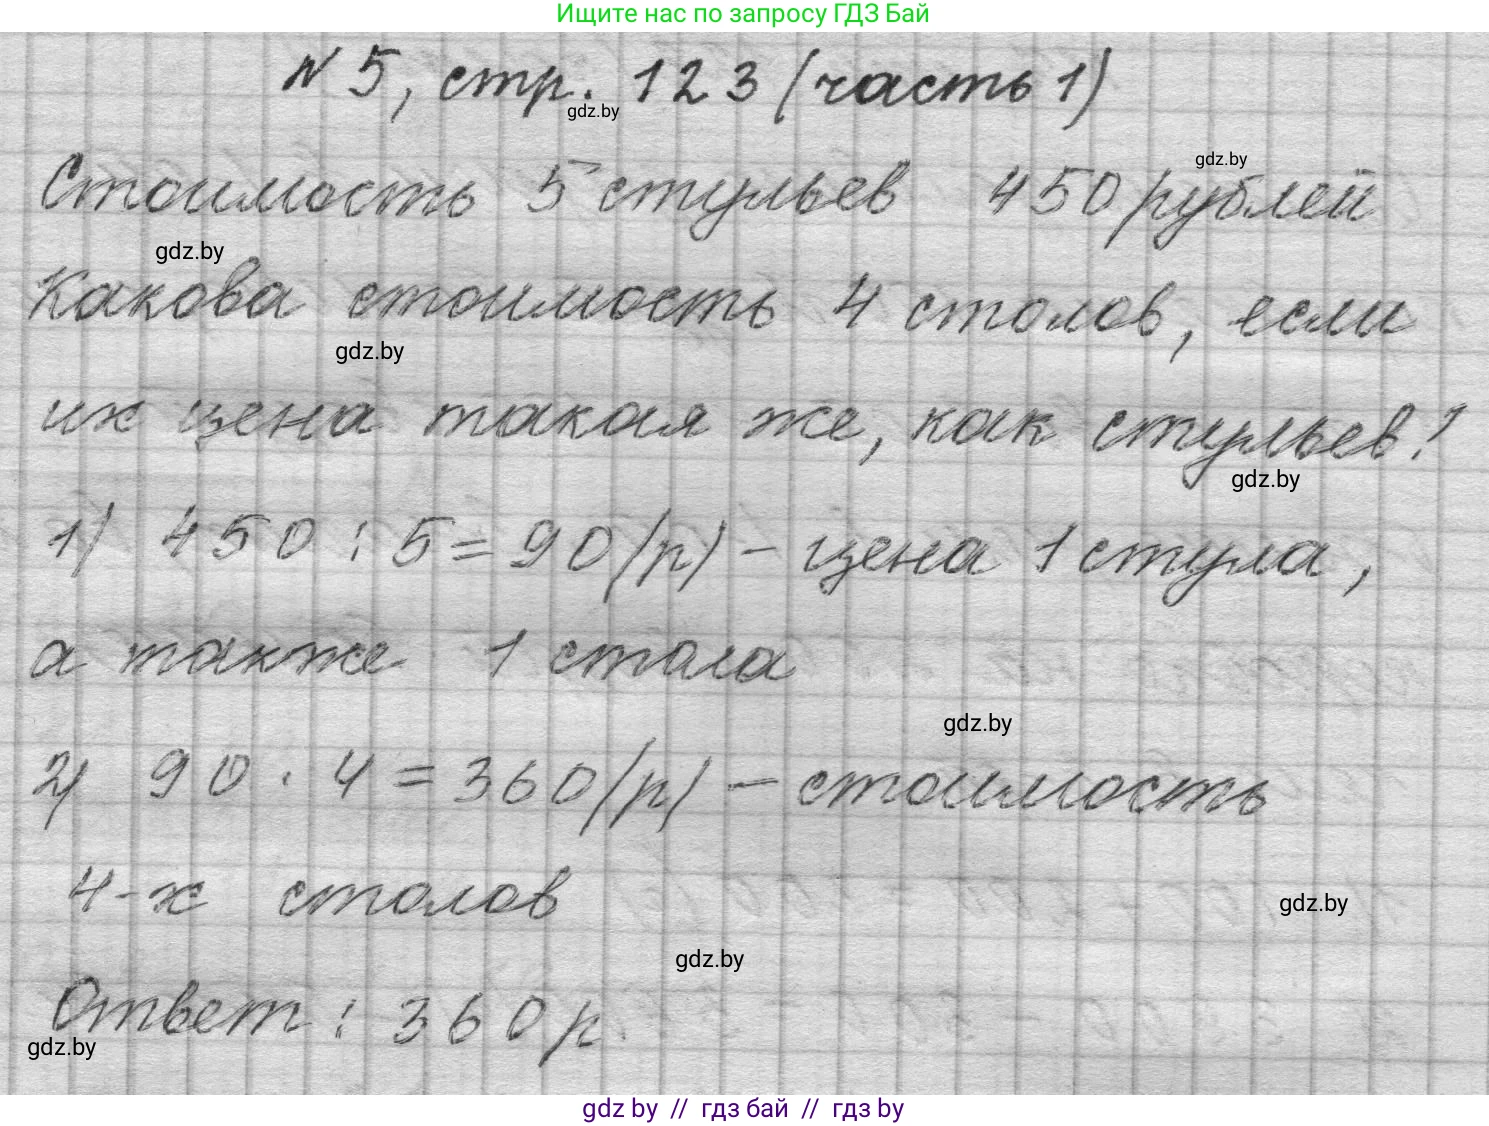 Ищите нас по запросу ГДЗ Бай
№ 5, стр. 123 (часть 1)
gdz.by
Стоимость 5 стульев 450 рублей
gdz.by
gdz.by
Какова стоимость 4 столов, если
gdz.by
их цена такая же, как стульев?
gdz.by
1) 450 : 5 = 90 (р) – цена 1 стула,
а также 1 стола
gdz.by
2) 90 · 4 = 360 (р) – стоимость
4-х столов
gdz.by
gdz.by
Ответ : 360 р.
gdz.by
gdz by // гдз бай // гдз by